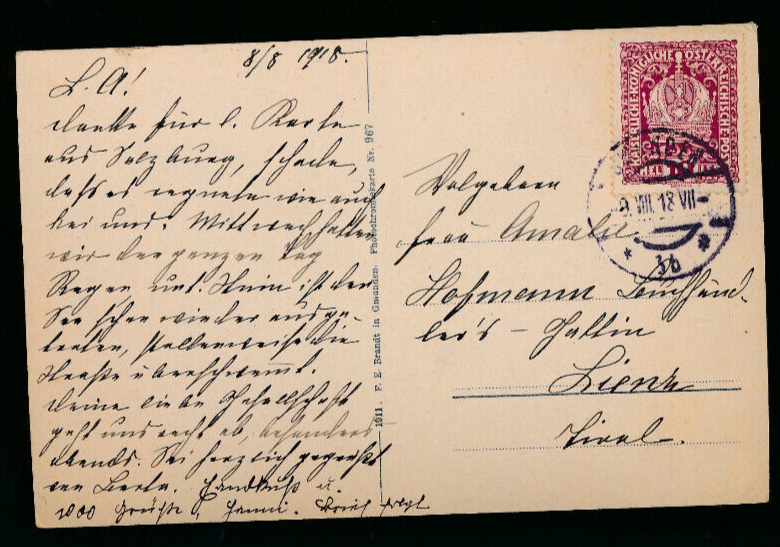 8/8 1918.
L. A!
danke für l. Karte
aus Salzburg, schade,
daß es regnete wie auch
bei uns. Mittwoch hatten
wir den ganzen Tag
Regen u. nun ist der
See schon wieder ausge-
treten, stellenweise die
Straße überschwemmt.
Deine liebe Gesellschaft
geht uns recht ab, besonders
abends. Sei herzlich gegrüßt
von Berta. Handkuß u.
1000 Grüße, Hanni. Brief folgt
1911. F. E. Brandt in Gmunden. Photochromiekarte Nr. 967
KAISERLICHE KÖNIGLICHE ÖSTERREICHISCHE POST
HELLER
9 VIII. 18 VII-
* 3b *
Wolgeboren
Frau Amalie
Hofmann Buchhänd-
ler's - Gattin
Lienz
Tirol.